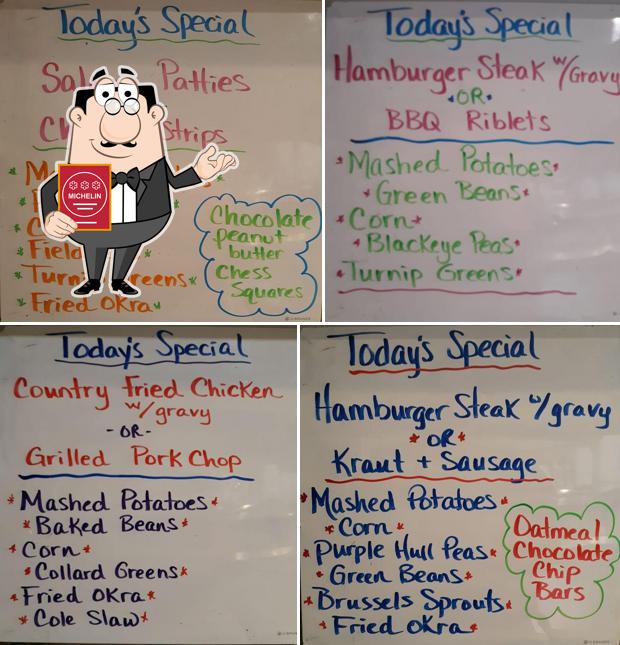 Today's Special
Patties
Strips
Turnip Greens
Fried Okra
Chocolate
peanut
butter
Chess
Squares
MICHELIN
Today's Special
Hamburger Steak w/Gravy
OR
BBQ Riblets
Mashed Potatoes
Green Beans
Corn
Blackeye Peas
Turnip Greens
Today's Special
Country Fried Chicken
w/gravy
-OR-
Grilled Pork Chop
Mashed Potatoes
Baked Beans
Corn
Collard Greens
Fried Okra
Cole Slaw
Today's Special
Hamburger Steak w/gravy
OR
Kraut + Sausage
Mashed Potatoes
Corn
Purple Hull Peas
Green Beans
Brussels Sprouts
Fried Okra
Oatmeal
Chocolate
Chip
Bars